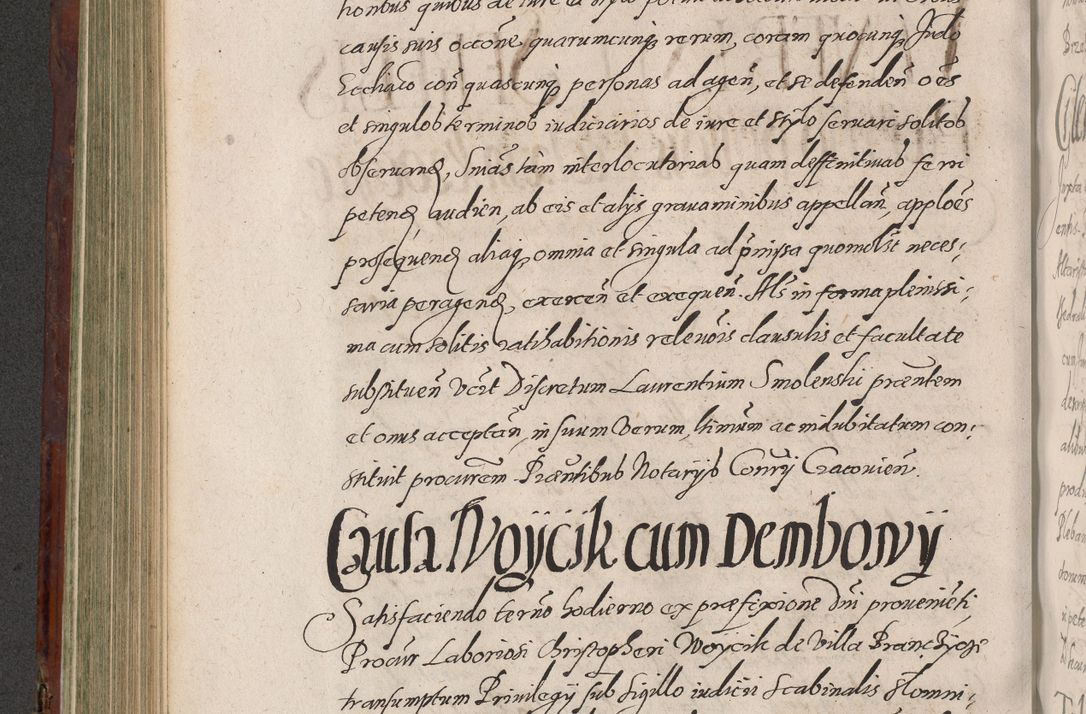 causis suis occõne, quarumcunq rerum, coram quocunq Judo
Eccliaco coñ quascunq personas ad ageñ, et se defendeñ oẽs
et singulos terminos iudiciarios de iure et stylo servari solitos
observand, Snias tam interlocutorias quam deffinitivas ferri
petend, audien, ab eis et alijs gravaminibus appellañ, apploẽs
prosequend aliaq omnia et singula ad pmissa quomolst neces-
saria peragend, exerceñ et exequeñ. Als in forma plenissi-
ma cum solitis ratihabitionis relevõis clausulis et facultate
substitueñ Vcit Discretum Laurentium Smolenski præntem
et onus acceptañ, in suum Verum, ltimũm ac indubitatum con-
stituit procurem Præntibus Notarijs Conrij Cracovieñ.
Causa Woÿcik cum Dembowÿ
Satisfaciendo terno hodierno ex præfixione Dni provenieti
Procur Laboriosi Christopheri Woycik de Villa
transumptum Privilegij sub sigillo iudicii Scabinalis Slomni-